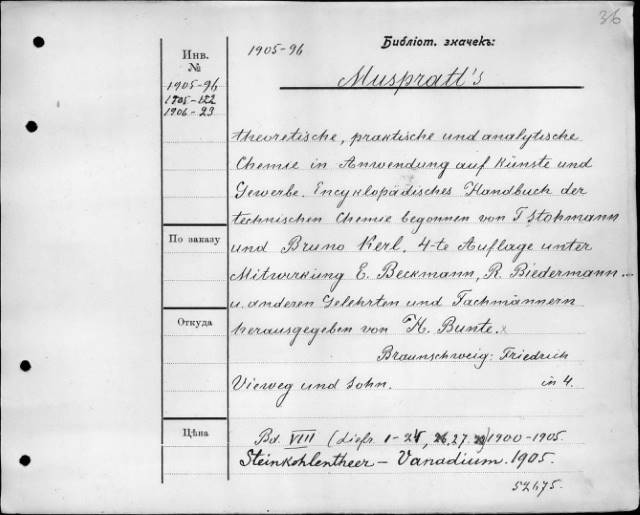 36
Библіот. значекъ:
Инв.
№
1905-96
1905-96
1905-122
1906-23
Muspratt's
theoretische, praktische und analytische
Chemie in Anwendung auf Künste und
Gewerbe. Encyklopädisches Handbuch der
technischen Chemie begonnen von F Stohmann
По заказу
und Bruno Kerl. 4-te Auflage unter
Mitwirkung E. Beckmann, R. Biedermann
u. anderen Gelehrten und Fachmännern
Откуда
herausgegeben von H. Bunte.
Braunschweig: Friedrich
Vieweg und Sohn. in 4.
Цѣна
Bd. VIII (Liefr. 1-25, 26, 27. ) 1900-1905.
Steinkohlentheer - Vanadium. 1905.
52675.